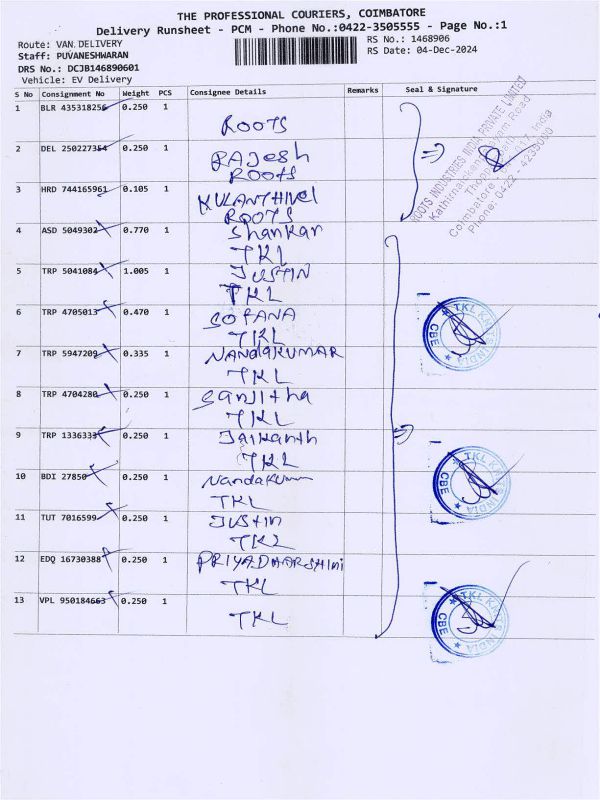 THE PROFESSIONAL COURIERS, COIMBATORE
Delivery Runsheet - PCM - Phone No.:0422-3505555 - Page No.:1
Route: VAN DELIVERY
RS No.: 1468906
Staff: PUVANESHWARAN
RS Date: 04-Dec-2024
DRS No.: DCJB146890601
Vehicle: EV Delivery
S No Consignment No Weight PCS Consignee Details Remarks Seal & Signature
1 BLR 435318256 0.250 1
ROOTS
2 DEL 250227354 0.250 1
RAJesh
ROOTS
3 HRD 744165961 0.105 1
KULANTHIVel
ROOTS
4 ASD 5049302 0.770 1 Shankar
TKL
5 TRP 5041084 1.005 1 JUSTIN
TKL
6 TRP 4705013 0.470 1 SOFANA
TKL
7 TRP 5947209 0.335 1 NANDAKUMAR
TKL
8 TRP 4704280 0.250 1 Sanjitha
TKL
9 TRP 1336333 0.250 1 Jaikanth
TKL
10 BDI 27850 0.250 1 Nandakumar
TKL
11 TUT 7016599 0.250 1 JUStin
TKL
12 EDQ 16730388 0.250 1 PRIYADHARSHINI
TKL
13 VPL 950184663 0.250 1
TKL
ROOTS INDUSTRIES INDIA PRIVATE LIMITED
Coimbatore
India
Phone: 0422 - 4235000
TKL
INDIA
CBE
TKL
INDIA
CBE
TKL
INDIA
CBE